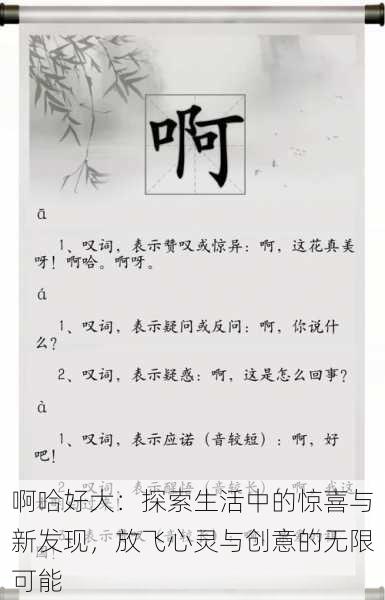 啊
ā
1、叹词，表示赞叹或惊异：啊，这花真美
呀！啊哈。啊呀。
á
1、叹词，表示疑问或反问：啊，你说什
么？
2、叹词，表示疑惑：啊，这是怎么回事？
à
1、叹词，表示应诺（音较短）：啊，好
吧！
2、叹词，表示醒悟（音较长）：啊，我这
啊哈好大：探索生活中的惊喜与
新发现，放飞心灵与创意的无限
可能